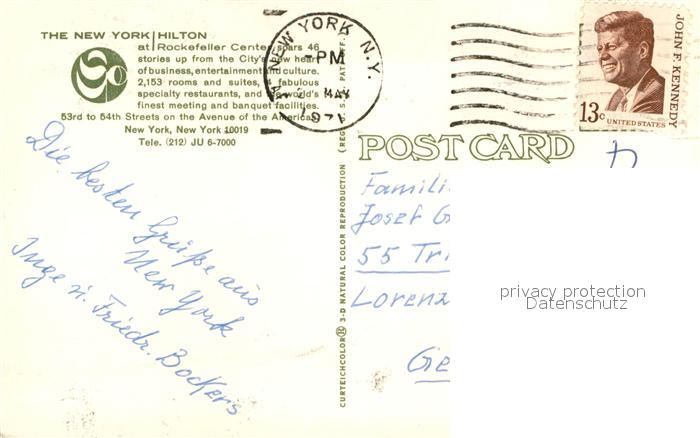 THE NEW YORK HILTON
at Rockefeller Center soars 46
stories up from the City's new heart
of business, entertainment and culture.
2,153 rooms and suites, fabulous
specialty restaurants, and world's
finest meeting and banquet facilities.
53rd to 54th Streets on the Avenue of the Americas
New York, New York 10019
Tele. (212) JU 6-7000
NEW YORK N.Y.
PM
2 MAY
1971
JOHN F. KENNEDY
13c
UNITED STATES
POST CARD
CURTEICHCOLOR® 3-D NATURAL COLOR REPRODUCTION (REG. U.S.A. PAT. OFF.
Die besten Grüße aus
New York
Inge u. Friedr. Bockers
Famili
Josef G
55 Tri
Lorenz
Ge
privacy protection
Datenschutz